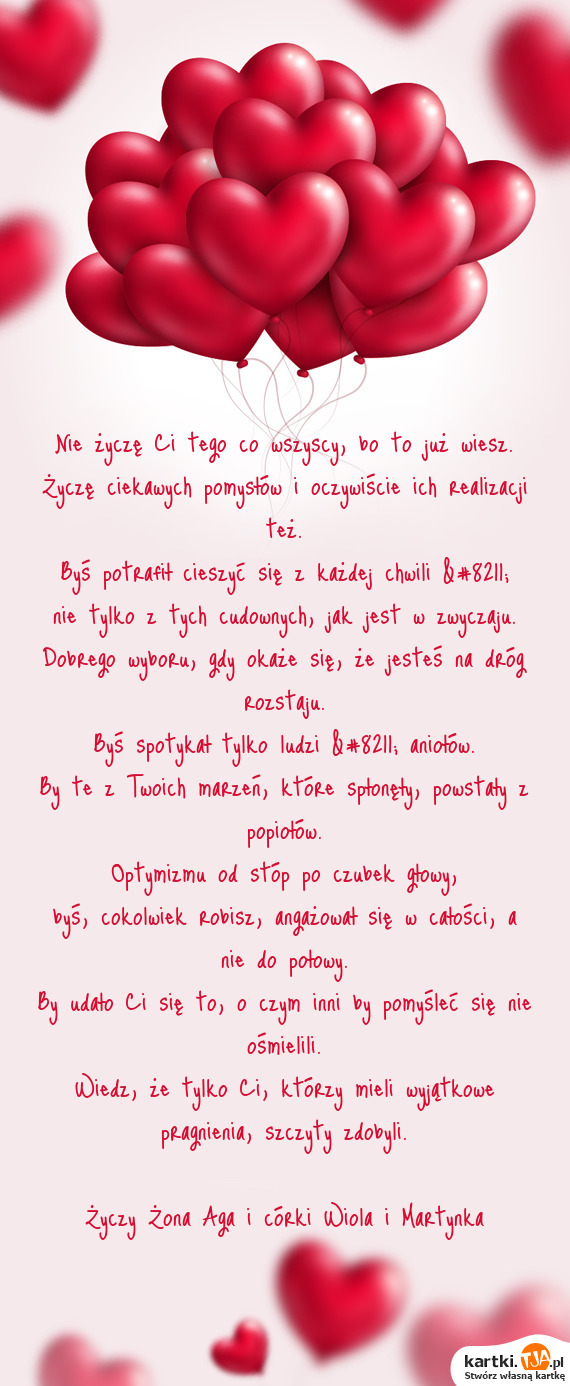 Nie życzę Ci tego co wszyscy, bo to już wiesz.
Życzę ciekawych pomysłów i oczywiście ich realizacji
też.
Byś potrafił cieszyć się z każdej chwili &#8211;
nie tylko z tych cudownych, jak jest w zwyczaju.
Dobrego wyboru, gdy okaże się, że jesteś na dróg
rozstaju.
Byś spotykał tylko ludzi &#8211; aniołów.
By te z Twoich marzeń, które spłonęły, powstały z
popiołów.
Optymizmu od stóp po czubek głowy,
byś, cokolwiek robisz, angażował się w całości, a
nie do połowy.
By udało Ci się to, o czym inni by pomyśleć się nie
ośmielili.
Wiedz, że tylko Ci, którzy mieli wyjątkowe
pragnienia, szczyty zdobyli.
Życzy Żona Aga i córki Wiola i Martynka
kartki.TJA.pl
Stwórz własną kartkę